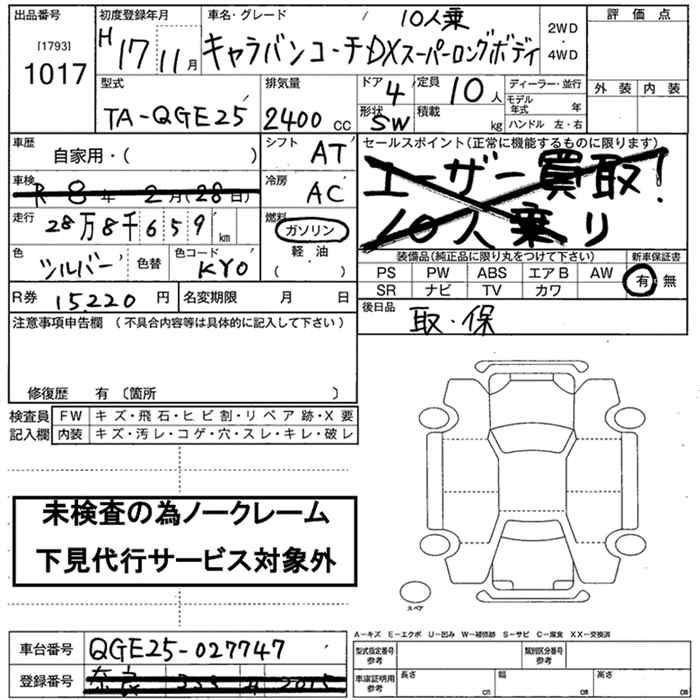 出品番号 初度登録年月 車名・グレード 10人乗 評価点
[1793]
1017
H17 11月 キャラバンコーチDXスーパーロングボディ 2WD・4WD
外装 内装
型式 排気量 ドア 定員 ディーラー・並行
TA-QGE25 2400cc 4 10人 モデル年式 年
形状 積載 ハンドル 左・右
SW kg
車歴 シフト セールスポイント(正常に機能するものに限ります)
自家用・( ) AT ユーザー買取!
車検 冷房
R8年2月(28日) AC 10人乗り
走行 燃料
28万8千659km ガソリン
軽油
( )
色 色替 色コード 装備品(純正品に限り丸をつけて下さい) 新車保証書
シルバー KYO PS PW ABS エアB AW 有・無
SR ナビ TV カワ
R券 15,220円 名変期限 月 日 後日品
取・保
注意事項申告欄 (不具合内容等は具体的に記入して下さい)
修復歴 有 〔箇所 〕
検査員記入欄 FW キズ・飛石・ヒビ割・リペア跡・X要
内装 キズ・汚レ・コゲ・穴・スレ・キレ・破レ
未検査の為ノークレーム
下見代行サービス対象外
スペア
A-キズ E-エクボ U-凹み W-補修跡 S-サビ C-腐食 XX-交換済
車台番号 QGE25-027747 型式指定番号 参考 類別区分番号 参考
登録番号 奈良 車庫証明用 参考 長さ cm 幅 cm 高さ cm